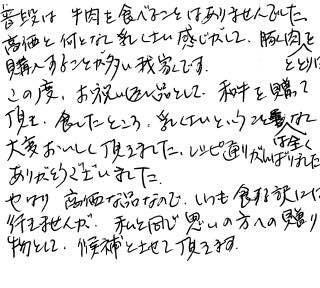 普段は 牛肉を食べることはありませんでした。
高価と何となく乳くさい感じがして、豚肉と とり
購入することが多い我家です。
この度、お祝い返し品として、和牛を贈って
頂き、食したところ、乳くさいということはなく 全く
大変おいしく頂きました。レシピ通りがんばりました
ありがとうございました。
やはり 高価な品なので、いつも食する訳には
行きませんが、私と同じ思いの方への贈り
物として、候補とさせて頂きます。